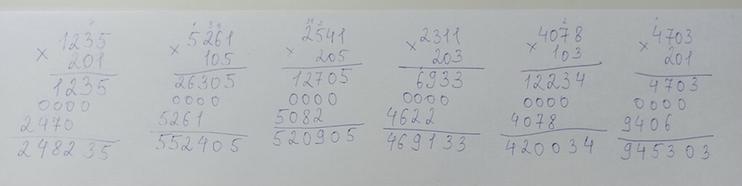 1235
× 201
1235
0000
2470
248235
5261
× 105
26305
0000
5261
552405
2541
× 205
12705
0000
5082
520905
2311
× 203
6933
0000
4622
469133
4078
× 103
12234
0000
4078
420034
4703
× 201
4703
0000
9406
945303